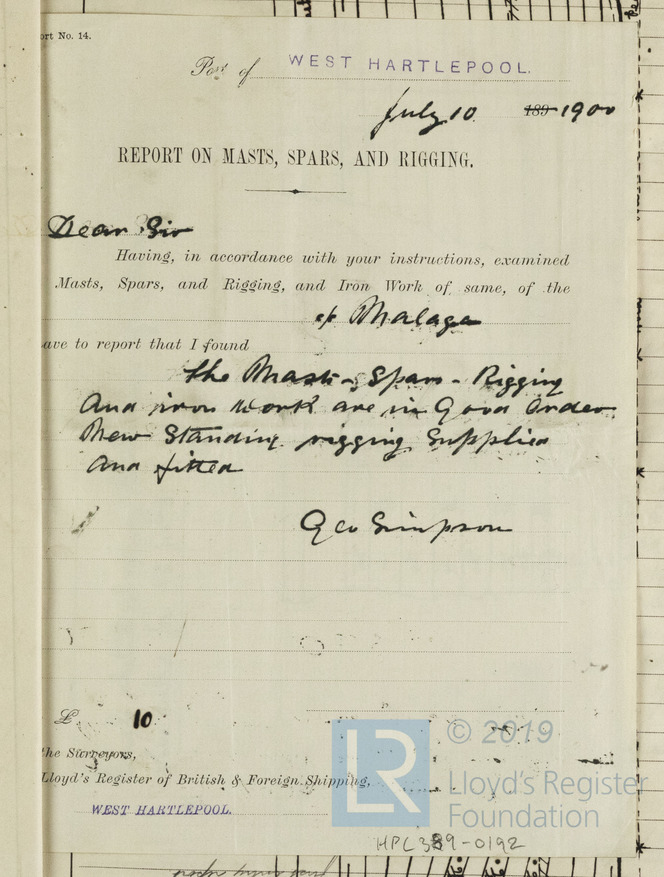 ort No. 14.
Port of WEST HARTLEPOOL.
July 10 189 1900
REPORT ON MASTS, SPARS, AND RIGGING.
Dear Sir
Having, in accordance with your instructions, examined
Masts, Spars, and Rigging, and Iron Work of same, of the
Malaga
ave to report that I found
the Masts - Spars - Rigging
And iron work are in Good Order
New Standing rigging Supplied
And fitted
Geo Simpson
£ 10
the Surveyors,
Lloyd's Register of British & Foreign Shipping,
WEST HARTLEPOOL.
LR © 2019
Lloyd's Register
Foundation
HPL389-0192